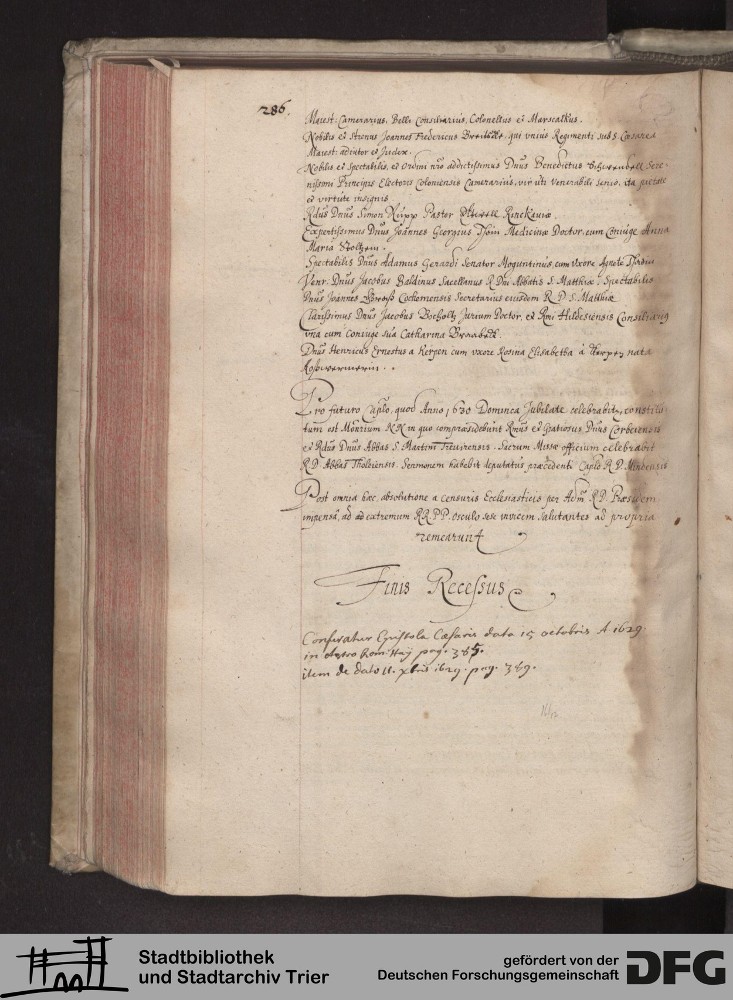 286.
Maiest: Camerarius, Belli Consiliarius, Colonellus et Marscalkus.
Nobilis et Strenus Joannes Fredericus qui unius Regimenti sub S. Caesarea
Maiest: et Judex.
Nobilis et Spectabilis, et Ordini nro addictissimus Dnus Benedictus Sere-
nissimi Principis Electoris Coloniensis Camerarius, vir uti Venerabili senio, ita pietate
et virtute insignis
Rdus Dnus Simon Pastor
Expertissimus Dnus Joannes Georgius Medicinae Doctor, cum Coniuge Anna
Maria
Spectabilis Dnus Adamus Gerardi Senator Moguntinus, cum Uxore Agnete
Venr. Dnus Jacobus Baldinus Sacellanus R. Dni Abbatis S. Matthiae. Spectabilis
Dnus Joannes Cochemensis Secretarius eiusdem R. D. S. Matthiae
Clarissimus Dnus Jacobus Bocholtz Jurium Doctor, et Rmi Hildesiensis Consiliarius
una cum Coniuge sua Catharina
Dnus Henricus Ernestus a Kerpen cum uxore Rosina Elisabetha à nata

Pro futuro Caplo, quod Anno 1630 Dominica Jubilate celebrabitur, constitu
tum est Monrium N.N. in quo compraesidebunt Rmus et Gratiosus Dnus Corbeiensis
et Rdus Dnus Abbas S. Martini Trevirensis. Sacrum Missae officium celebrabit
R.D. Abbas Tholeiensis. Sermonem habebit deputatus praecedenti Caplo R.P. Mindensis
Post omnia haec absolutione a censuris Ecclesiasticis per Adm. R.D. Praesidem
impensa, ad extremum RR.PP. osculo sese invicem salutantes ad propria
remearunt
Finis Recessus
Conferatur Epistola Caesaris data 15 octobris A 1629.
in pag. 385.
item de dato 11. xbris 1629. pag. 389.
Stadtbibliothek
und Stadtarchiv Trier
gefördert von der
Deutschen Forschungsgemeinschaft
DFG